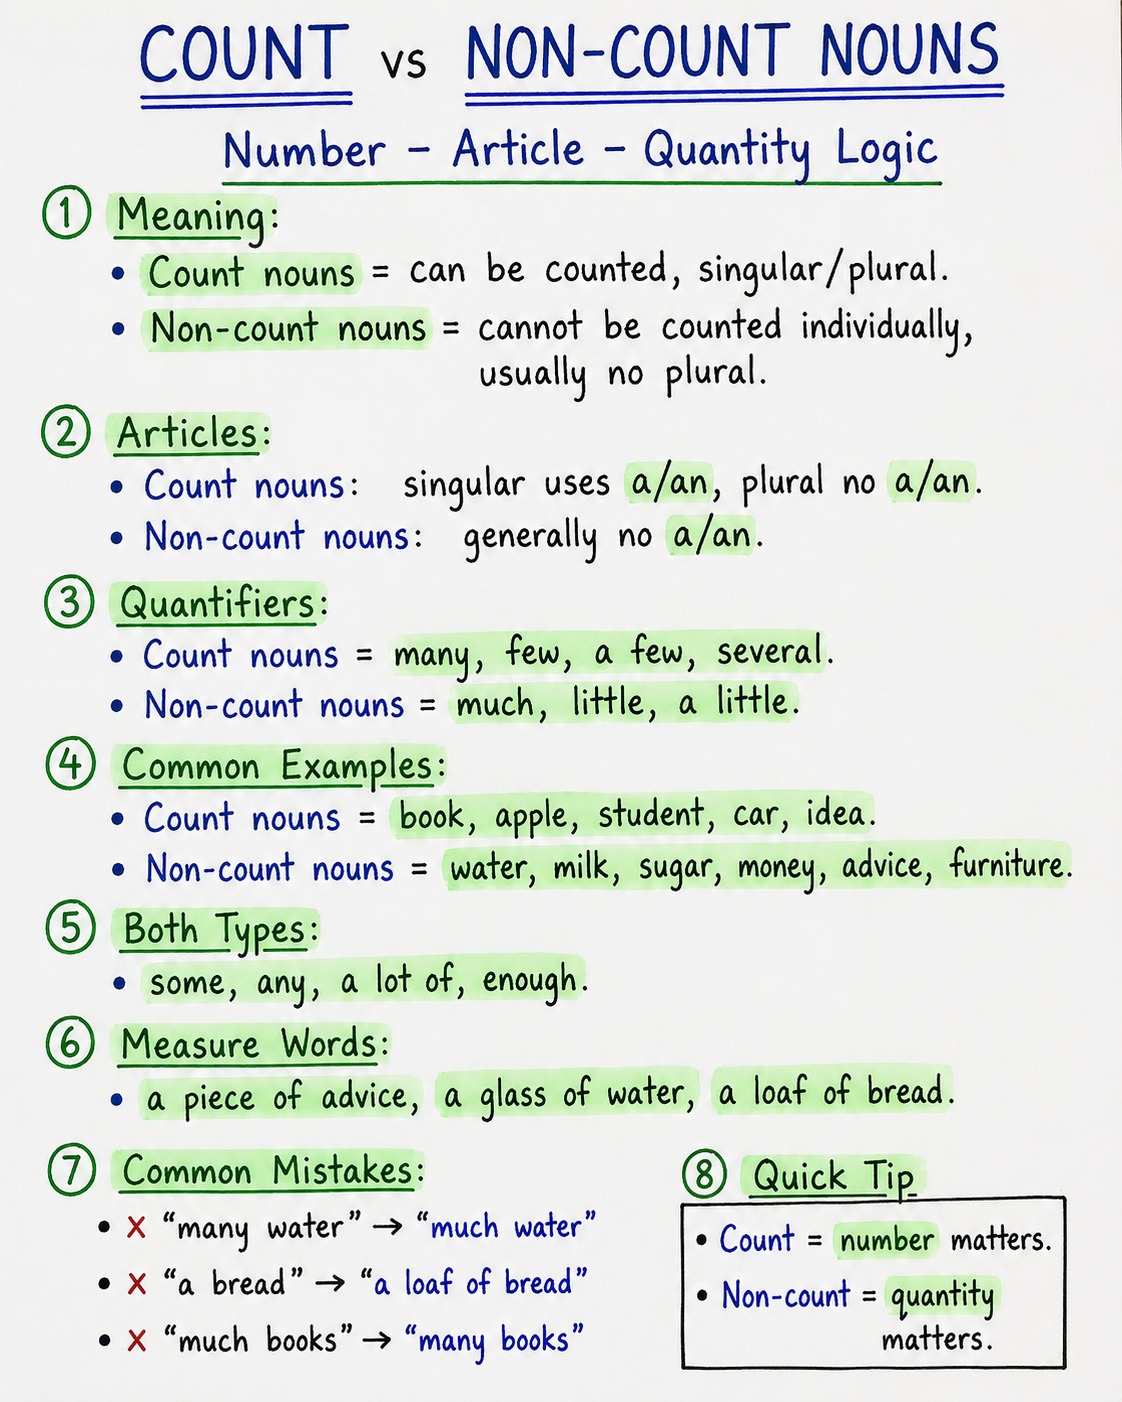 COUNT vs NON-COUNT NOUNS
Number – Article – Quantity Logic
① Meaning:
• Count nouns = can be counted, singular/plural.
• Non-count nouns = cannot be counted individually,
usually no plural.
② Articles:
• Count nouns: singular uses a/an, plural no a/an.
• Non-count nouns: generally no a/an.
③ Quantifiers:
• Count nouns = many, few, a few, several.
• Non-count nouns = much, little, a little.
④ Common Examples:
• Count nouns = book, apple, student, car, idea.
• Non-count nouns = water, milk, sugar, money, advice, furniture.
⑤ Both Types:
• some, any, a lot of, enough.
⑥ Measure Words:
• a piece of advice, a glass of water, a loaf of bread.
⑦ Common Mistakes:
• X “many water” → “much water”
• X “a bread” → “a loaf of bread”
• X “much books” → “many books”
⑧ Quick Tip
• Count = number matters.
• Non-count = quantity
matters.